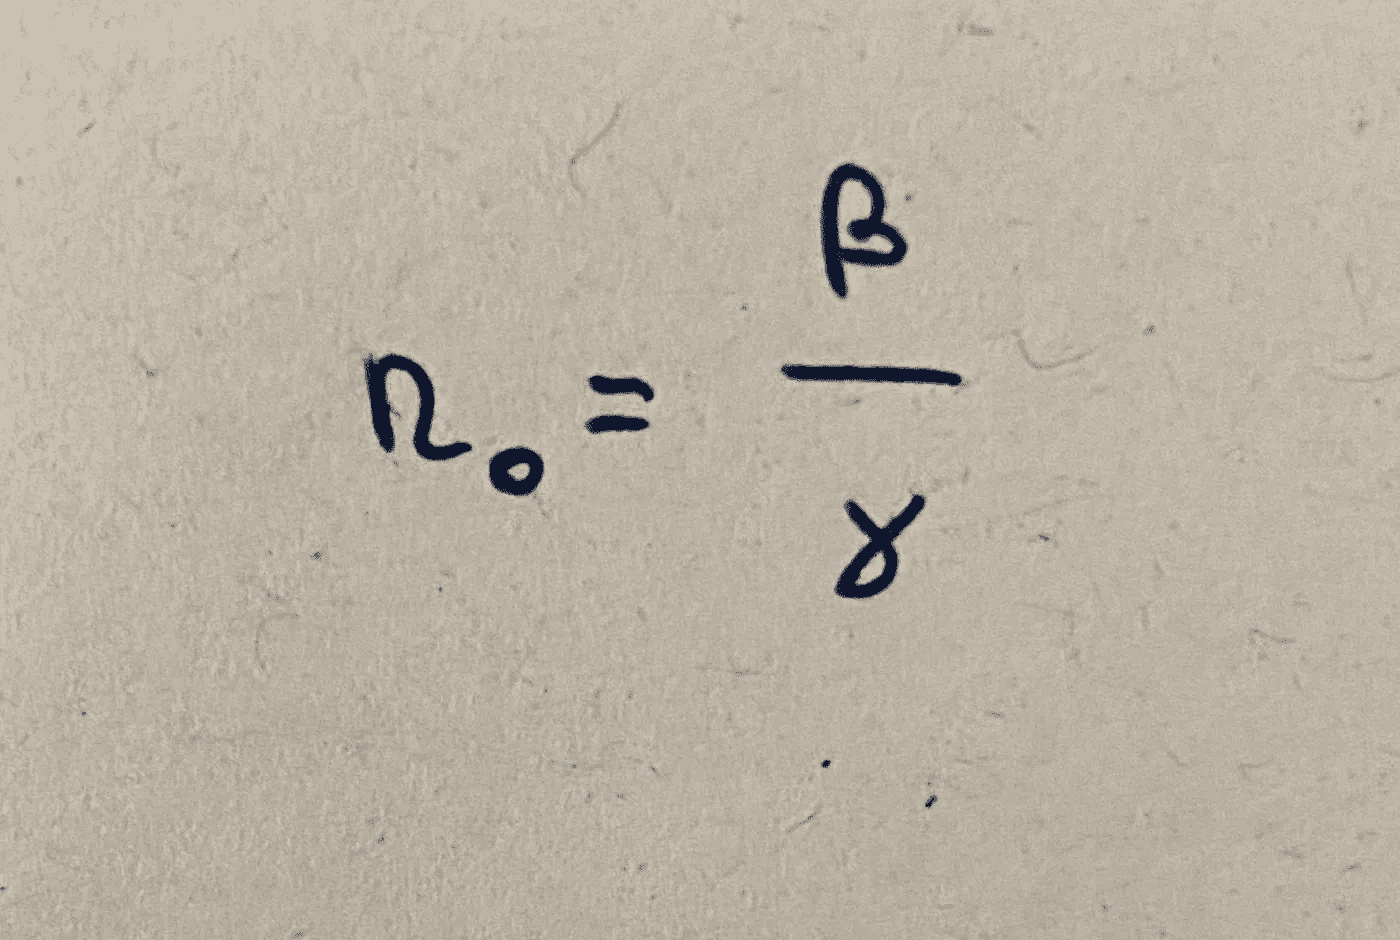 R₀ = β/γ